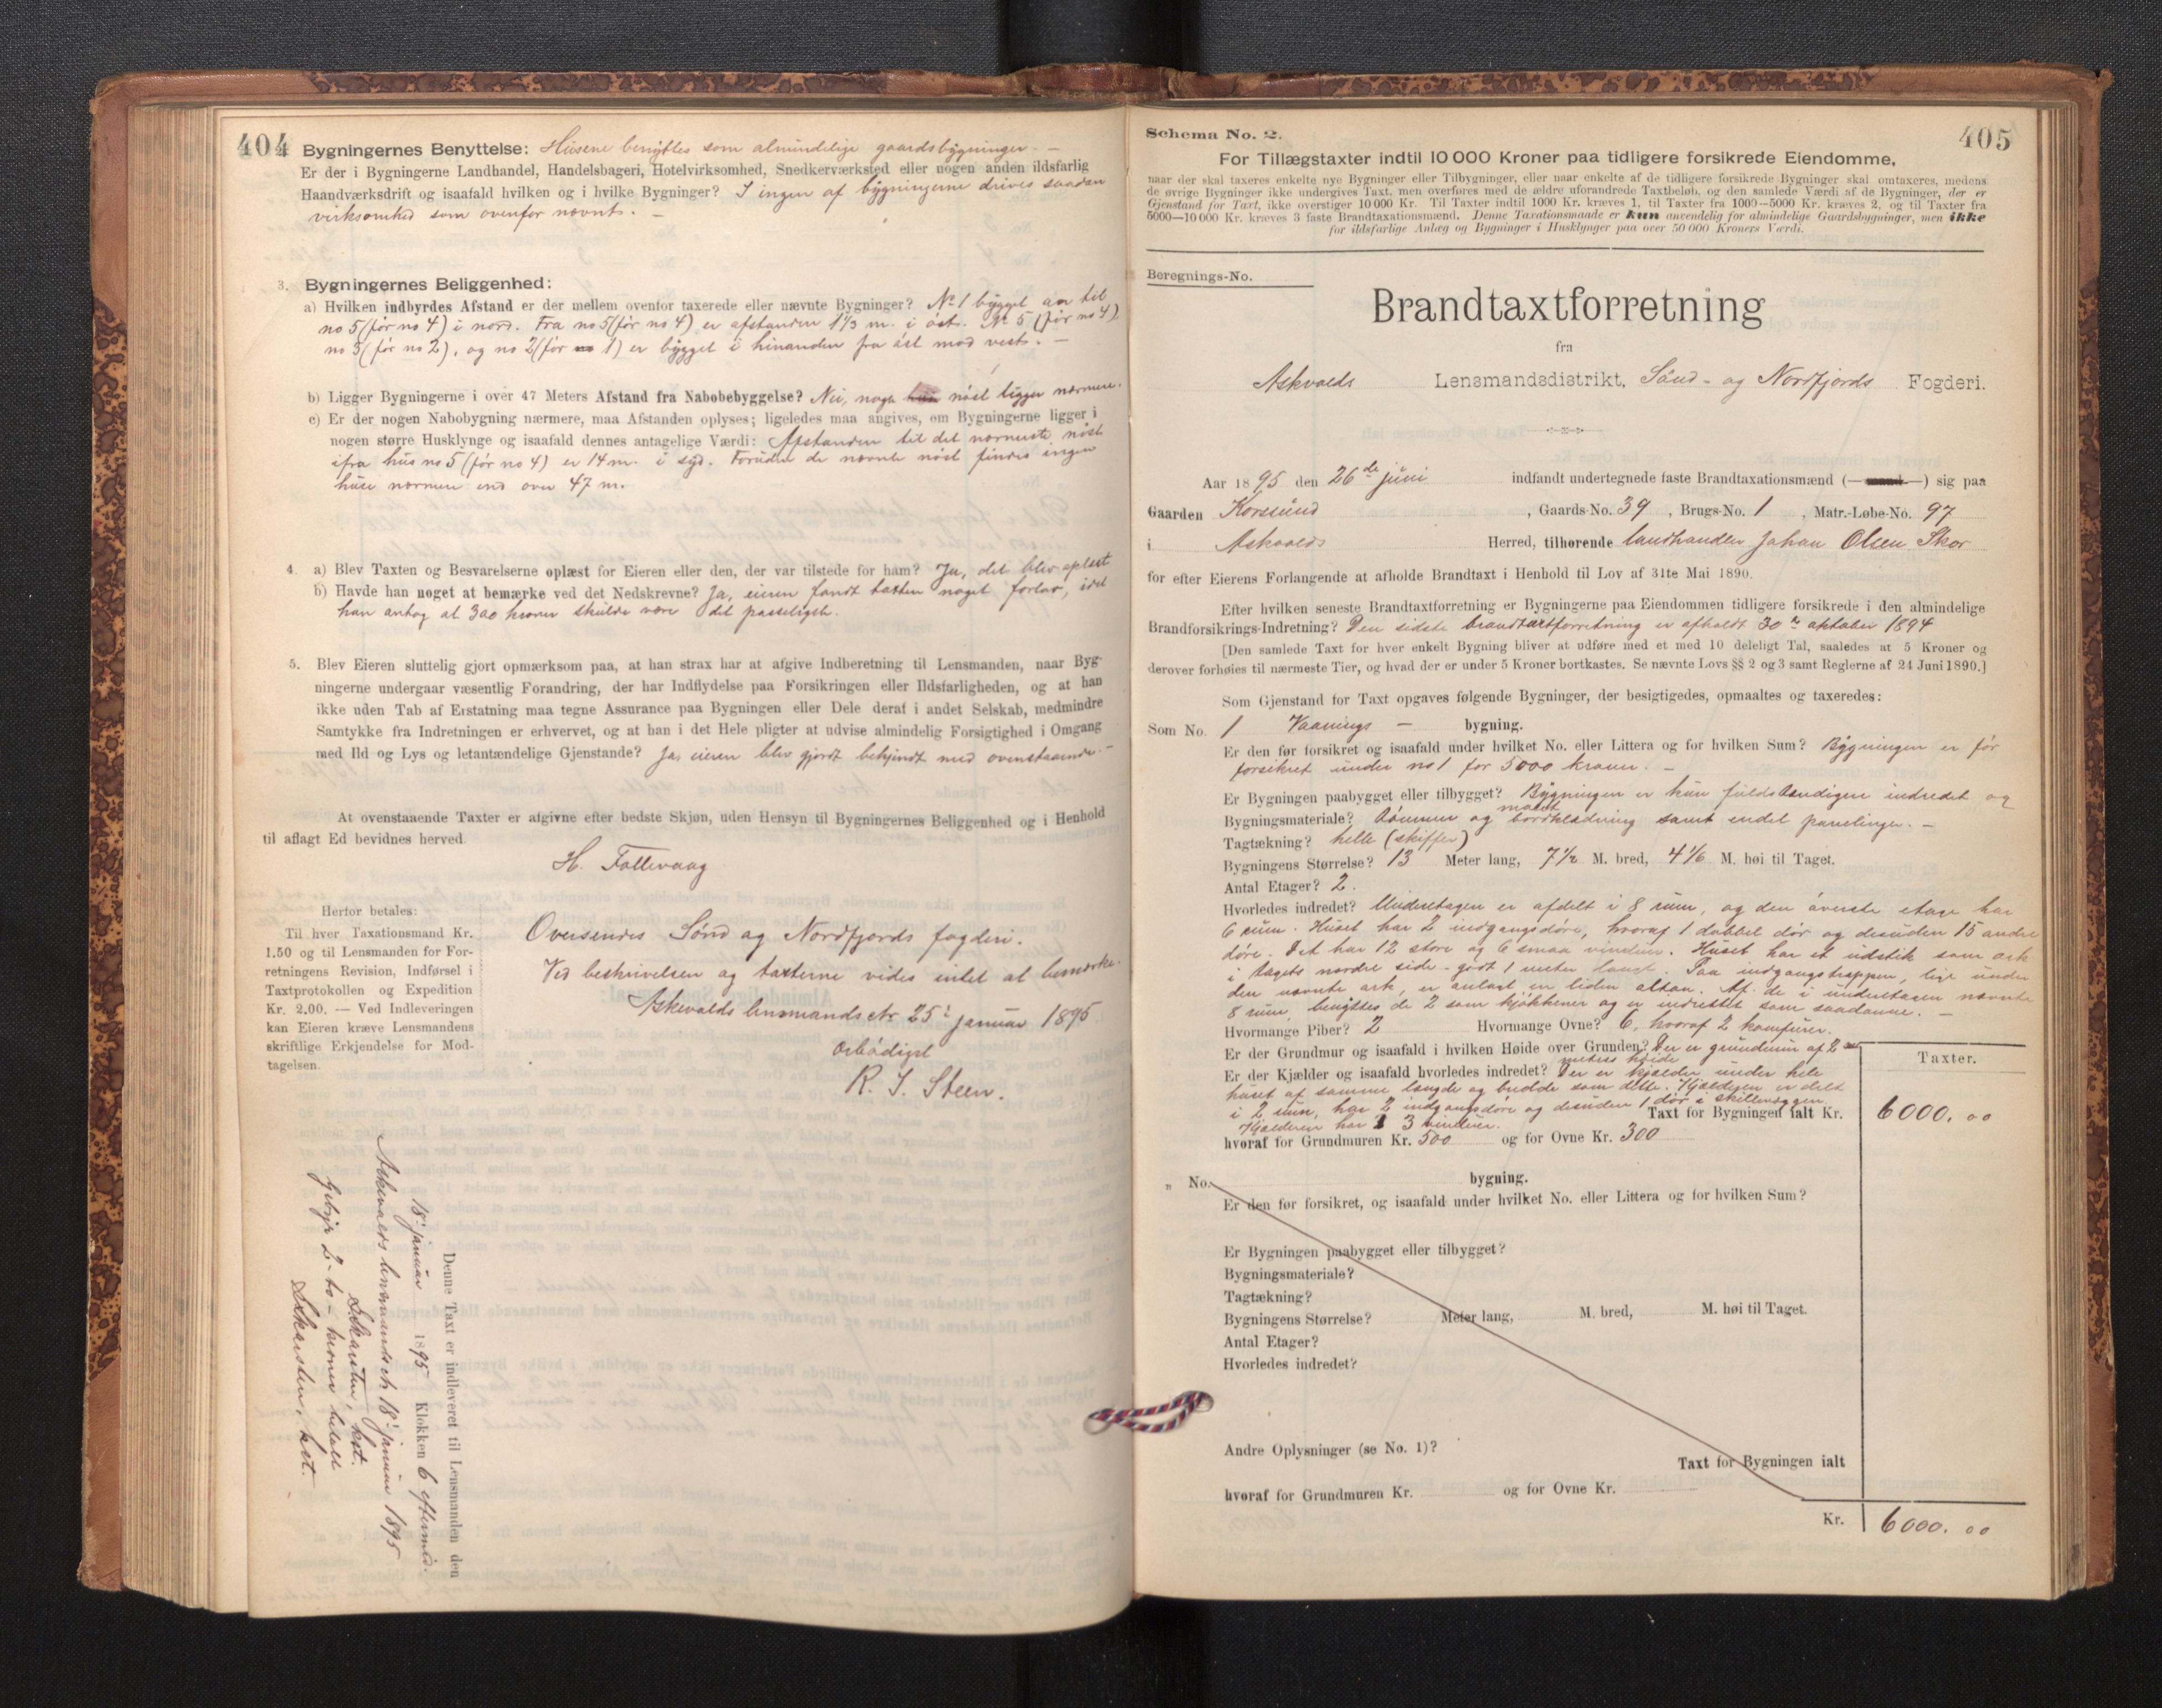 404
Bygningernes Benyttelse: Husene benyttes som almindelige gaardsbygninger. —
Er der i Bygningerne Landhandel, Handelsbageri, Hotelvirksomhed, Snedkerværksted eller nogen anden ildsfarlig
Haandværksdrift og isaafald hvilken og i hvilke Bygninger? I ingen af bygningerne drives saadan
virksomhed som ovenfor nævnt. —
3. Bygningernes Beliggenhed:
a) Hvilken indbyrdes Afstand er der mellem ovenfor taxerede eller nævnte Bygninger? No 1 bygget an til
no 5 (før no 4) i nord. Fra no 5 (før no 4) er afstanden 1 1/3 m. i øst. No 5 (før no 4)
no 3 (før no 2), og no 2 (før no 1) er bygget i hinanden fra øst mod vest. —
b) Ligger Bygningerne i over 47 Meters Afstand fra Nabobebyggelse? Nei, nogle nøst ligger nærmere.
c) Er der nogen Nabobygning nærmere, maa Afstanden oplyses; ligeledes maa angives, om Bygningerne ligger i
nogen større Husklynge og isaafald dennes antagelige Værdi: Afstanden til det nærmeste nøst
ifra hus no 5 (før no 4) er 14 m. i syd. Foruden de nævnte nøst findes ingen
huse nærmere end over 47 m.
4. a) Blev Taxten og Besvarelserne oplæst for Eieren eller den, der var tilstede for ham? Ja, det blev oplæst
b) Havde han noget at bemærke ved det Nedskrevne? Ja, eieren fandt taxten noget forlav, idet
han antog at 300 kroner skulde være det passeligste.
5. Blev Eieren sluttelig gjort opmærksom paa, at han strax har at afgive Indberetning til Lensmanden, naar Byg-
ningerne undergaar væsentlig Forandring, der har Indflydelse paa Forsikringen eller Ildsfarligheden, og at han
ikke uden Tab af Erstatning maa tegne Assurance paa Bygningen eller Dele deraf i andet Selskab, medmindre
Samtykke fra Indretningen er erhvervet, og at han i det Hele pligter at udvise almindelig Forsigtighed i Omgang
med Ild og Lys og letantændelige Gjenstande? Ja, eieren blev gjordt bekjendt med ovenstaaende. —
At ovenstaaende Taxter er afgivne efter bedste Skjøn, uden Hensyn til Bygningernes Beliggenhed og i Henhold
til aflagt Ed bevidnes herved.
H. Follevaag
Herfor betales:
Til hver Taxationsmand Kr.
1.50 og til Lensmanden for For-
retningens Revision, Indførsel i
Taxtprotokollen og Expedition
Kr. 2.00. — Ved Indleveringen
kan Eieren kræve Lensmandens
skriftlige Erkjendelse for Mod-
tagelsen.
Oversendes Sønd og Nordfjords fogderi.
Ved beskrivelsen og taxterne vides intet at bemærke.
Askevolds lensmandsktr 25' januar 1895
ærbødigst
R. I. Steen.
Denne Taxt er indleveret til Lensmanden den
18' januar 1895 Klokken 6 eftermid.
Askevolds lensmandsktr 18' januar 1895
L. Karsten, kst.
Gebyr 2 – to – kroner betalt
L. Karsten, kst.
Schema No. 2.
405
For Tillægstaxter indtil 10 000 Kroner paa tidligere forsikrede Eiendomme,
naar der skal taxeres enkelte nye Bygninger eller Tilbygninger, eller naar enkelte af de tidligere forsikrede Bygninger skal omtaxeres, medens
de øvrige Bygninger ikke undergives Taxt, men overføres med de ældre uforandrede Taxtbeløb, og den samlede Værdi af de Bygninger, der er
Gjenstand for Taxt, ikke overstiger 10 000 Kr. Til Taxter indtil 1000 Kr. kræves 1, til Taxter fra 1000—5000 Kr. kræves 2, og til Taxter fra
5000—10 000 Kr. kræves 3 faste Brandtaxationsmænd. Denne Taxationsmaade er kun anvendelig for almindelige Gaardsbygninger, men ikke
for ildsfarlige Anlæg og Bygninger i Husklynger paa over 50 000 Kroners Værdi.
Beregnings-No.
Brandtaxtforretning
fra
Askvolds Lensmandsdistrikt, Sønd- og Nordfjords Fogderi.
Aar 1895 den 26de juni indfandt undertegnede faste Brandtaxationsmænd (— mand —) sig paa
Gaarden Korssund, Gaards-No. 39, Brugs-No. 1, Matr.-Løbe-No. 97
i Askvolds Herred, tilhørende landhandler Johan Olsen Skor
for efter Eierens Forlangende at afholde Brandtaxt i Henhold til Lov af 31te Mai 1890.
Efter hvilken seneste Brandtaxtforretning er Bygningerne paa Eiendommen tidligere forsikrede i den almindelige
Brandforsikrings-Indretning? Den sidste brandtaxtforretning er afholdt 30te oktober 1894
[Den samlede Taxt for hver enkelt Bygning bliver at udføre med et med 10 deleligt Tal, saaledes at 5 Kroner og
derover forhøies til nærmeste Tier, og hvad der er under 5 Kroner bortkastes. Se nævnte Lovs §§ 2 og 3 samt Reglerne af 24 Juni 1890.]
Som Gjenstand for Taxt opgaves følgende Bygninger, der besigtigedes, opmaaltes og taxeredes:
Som No. 1 Vaanings — bygning.
Er den før forsikret og isaafald under hvilket No. eller Littera og for hvilken Sum? Bygningen er før
forsikret under no 1 for 5000 kroner. —
Er Bygningen paabygget eller tilbygget? Bygningen er kun fuldstændigere indredet og
malet
Bygningsmateriale? Tømmer og bordklædning samt endel panelinger. —
Tagtækning? helle (skiffer)
Bygningens Størrelse? 13 Meter lang, 7 1/2 M. bred, 4 1/6 M. høi til Taget.
Antal Etager? 2.
Hvorledes indredet? Underetagen er afdelt i 8 rum, og den øverste etage har
6 rum. Huset har 2 indgangsdøre, hvoraf 1 dobbel dør og desuden 15 andre
døre. Det har 12 store og 6 smaa vinduer. Huset har et udstik som ark
i tagets nordre side - godt 1 meter langt. Paa indgangstrappen, lige under
den nævnte ark, er anlagt en liden altan. Af de i underetagen nævnte
8 rum, benyttes de 2 som kjøkkener og er indrettet som saadanne. —
Hvormange Piber? 2 Hvormange Ovne? 6, hvoraf 2 komfurer.
Er der Grundmur og isaafald i hvilken Høide over Grunden? Der er grundmur af 2
meters høide
Er der Kjælder og isaafald hvorledes indredet? Der er kjælder under hele
huset af samme længde og bredde som dette. Kjælderen er delt
i 2 rum, har 2 indgangsdøre og desuden 1 dør i skillevæggen.
Kjælderen har 3 vinduer.
Taxt for Bygningen ialt Kr.
Taxter.
6000.00
hvoraf for Grundmuren Kr. 500 og for Ovne Kr. 300
„ No. bygning.
Er den før forsikret, og isaafald under hvilket No. eller Littera og for hvilken Sum?
Er Bygningen paabygget eller tilbygget?
Bygningsmateriale?
Tagtækning?
Bygningens Størrelse? Meter lang, M. bred, M. høi til Taget.
Antal Etager?
Hvorledes indredet?
Andre Oplysninger (se No. 1)?
Taxt for Bygningen ialt
hvoraf for Grundmuren Kr. og for Ovne Kr.
Kr. 6000.00